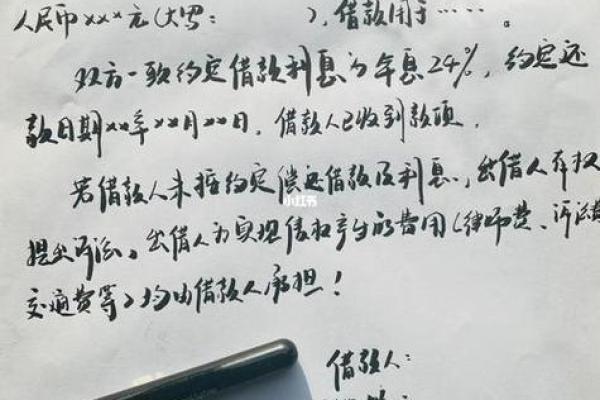 人民币×××元(大写:          ),借款用于……。
双方一致约定借款利息为年息24%,约定还
款日期××年××月××日,借款人已收到款项.
若借款人未按约定偿还借款及利息,出借人有权
提出诉讼,出借人为实现债权产生的费用(律师费、诉讼费
交通费等)均由借款人承担!
小红书
借款人: